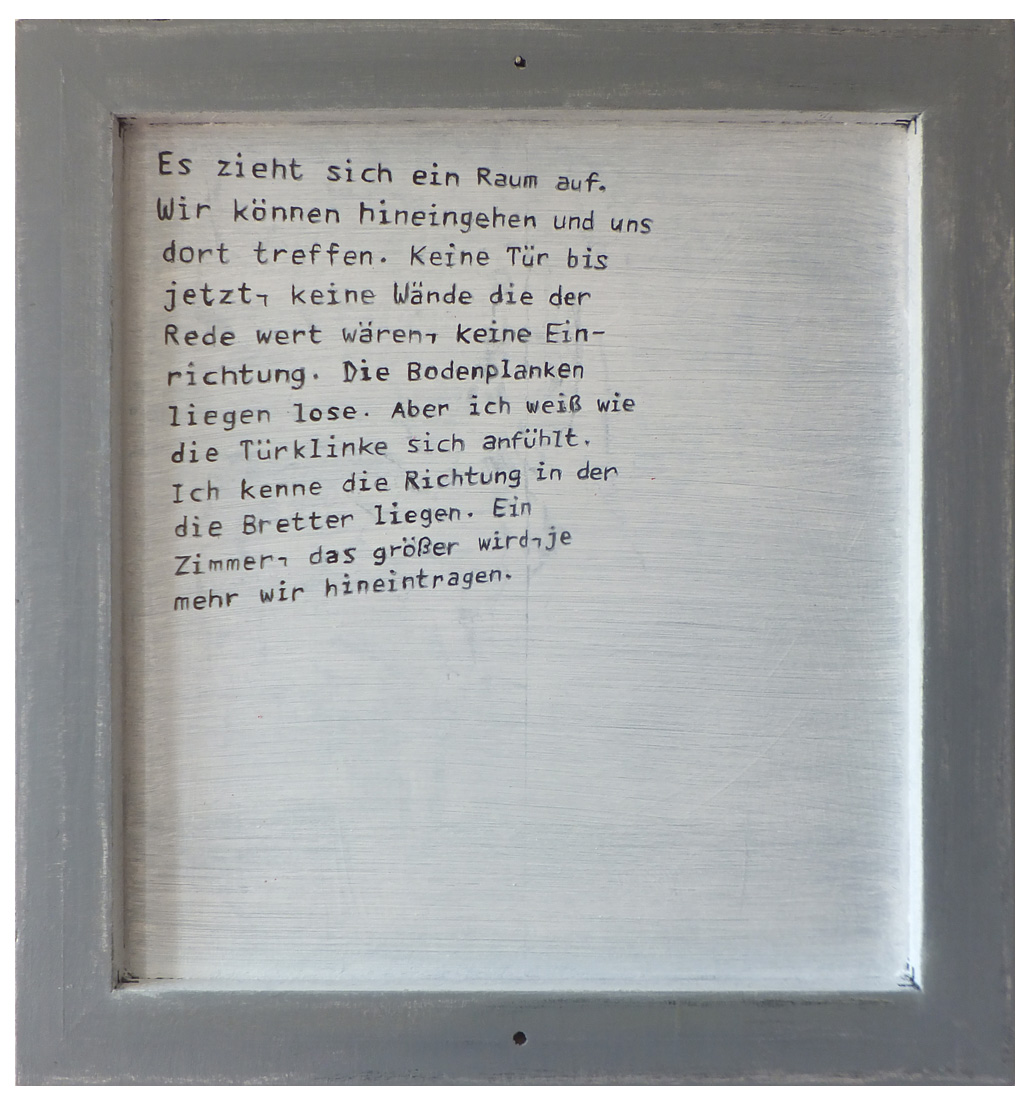 Es zieht sich ein Raum auf.
Wir können hineingehen und uns
dort treffen. Keine Tür bis
jetzt, keine Wände die der
Rede wert wären, keine Ein-
richtung. Die Bodenplanken
liegen lose. Aber ich weiß wie
die Türklinke sich anfühlt.
Ich kenne die Richtung in der
die Bretter liegen. Ein
Zimmer, das größer wird, je
mehr wir hineintragen.